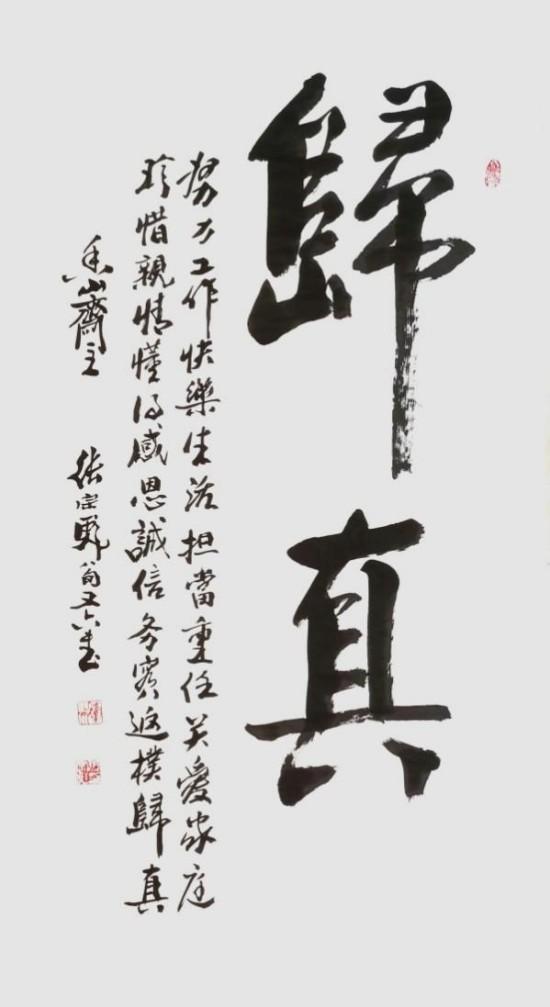 歸真
努力工作快樂生活担當重任关愛家庭
珍惜親情懂得感恩誠信务實返樸歸真
山齋主
張宗
書